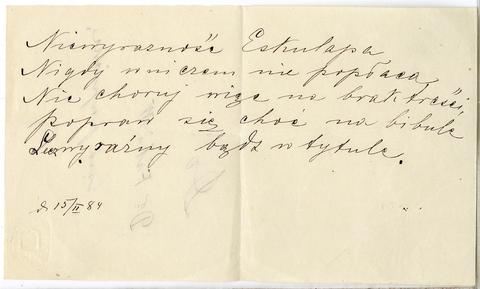 Niewyrazność Eskulapa
Nigdy w niczem nie popłaca
Nie choruj więc na brak treści,
popraw się choc na bibule
Lecz wyraźny bądź w tytule.
d 15/II 84